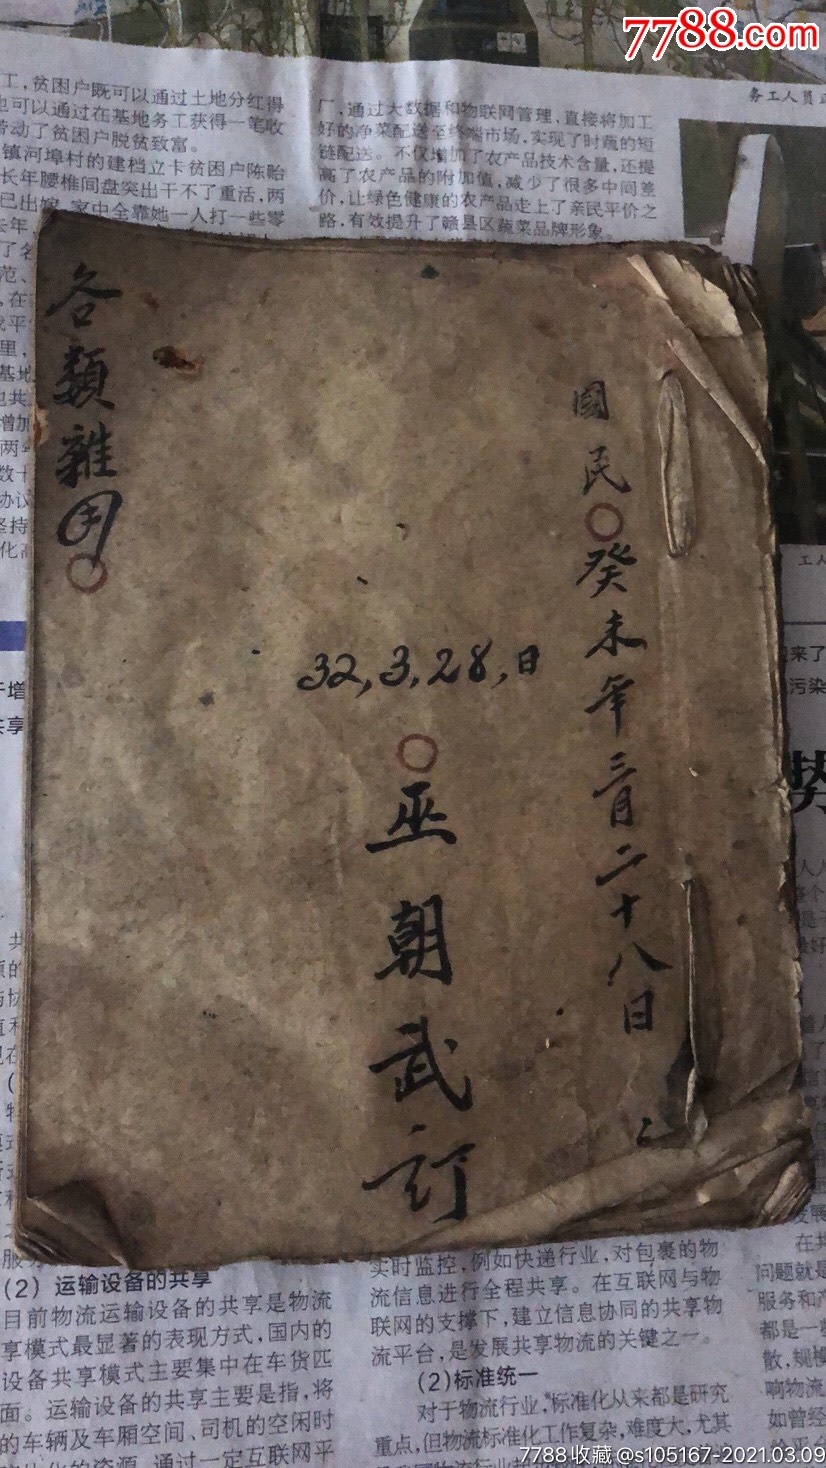 7788.com
工，贫困户既可以通过土地分红得
也可以通过在基地务工获得一笔收
带动了贫困户脱贫致富。
镇河埠村的建档立卡贫困户陈贻
长年腰椎间盘突出干不了重活，两
已出嫁，家中全靠她一人打一些零
厂，通过大数据和物联网管理，直接将加工
好的净菜配送至终端市场，实现了时蔬的短
链配送。不仅增加了农产品技术含量，还提
高了农产品的附加值，减少了很多中间差
价，让绿色健康的农产品走上了亲民平价之
路，有效提升了赣县区蔬菜品牌形象。
务工人员正
國民○癸未年三月二十八日
32,3,28,日
○巫朝武訂
各類雜用○
(2) 运输设备的共享
目前物流运输设备的共享是物流
享模式最显著的表现方式，国内的
设备共享模式主要集中在车货匹
面。运输设备的共享主要是指，将
的车辆及车厢空间、司机的空闲时
实时监控，例如快递行业，对包裹的物
流信息进行全程共享。在互联网与物
联网的支撑下，建立信息协同的共享物
流平台，是发展共享物流的关键之一。
(2)标准统一
对于物流行业，标准化从来都是研究
重点，但物流标准化工作复杂，难度大，尤其
发展
在共
问题就是
服务和产
都是一些
散，规模
响物流
如曾经
7788收藏@s105167-2021.03.09